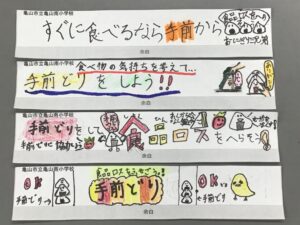 亀山市立亀山南小学校
すぐに食べるなら手前から
余白
亀山市立亀山南小学校
食べ物の気持ちを考えて…
手前どりをしよう!!
余白
亀山市立亀山南小学校
手前どりをして
食品ロスをへらそう
余白
亀山市立亀山南小学校
手前どり
OK
手前どり
OK
手前どり
余白